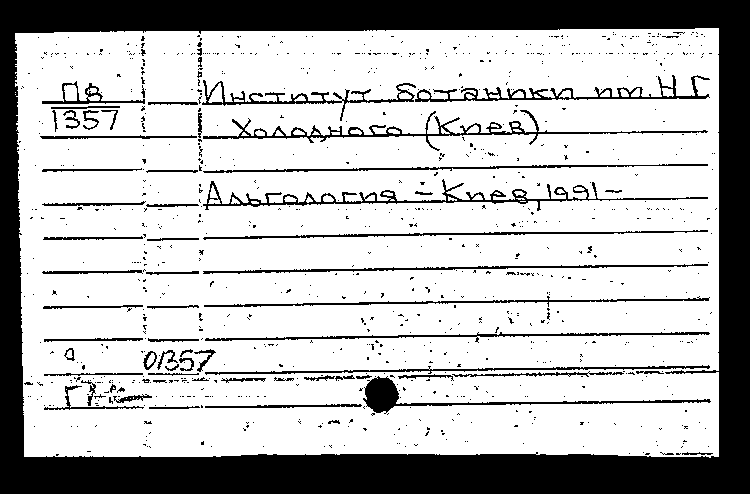 П8 Институт ботаники им. Н Г
1357 Холодного (Киев)
Альгология – Киев, 1991–
01357